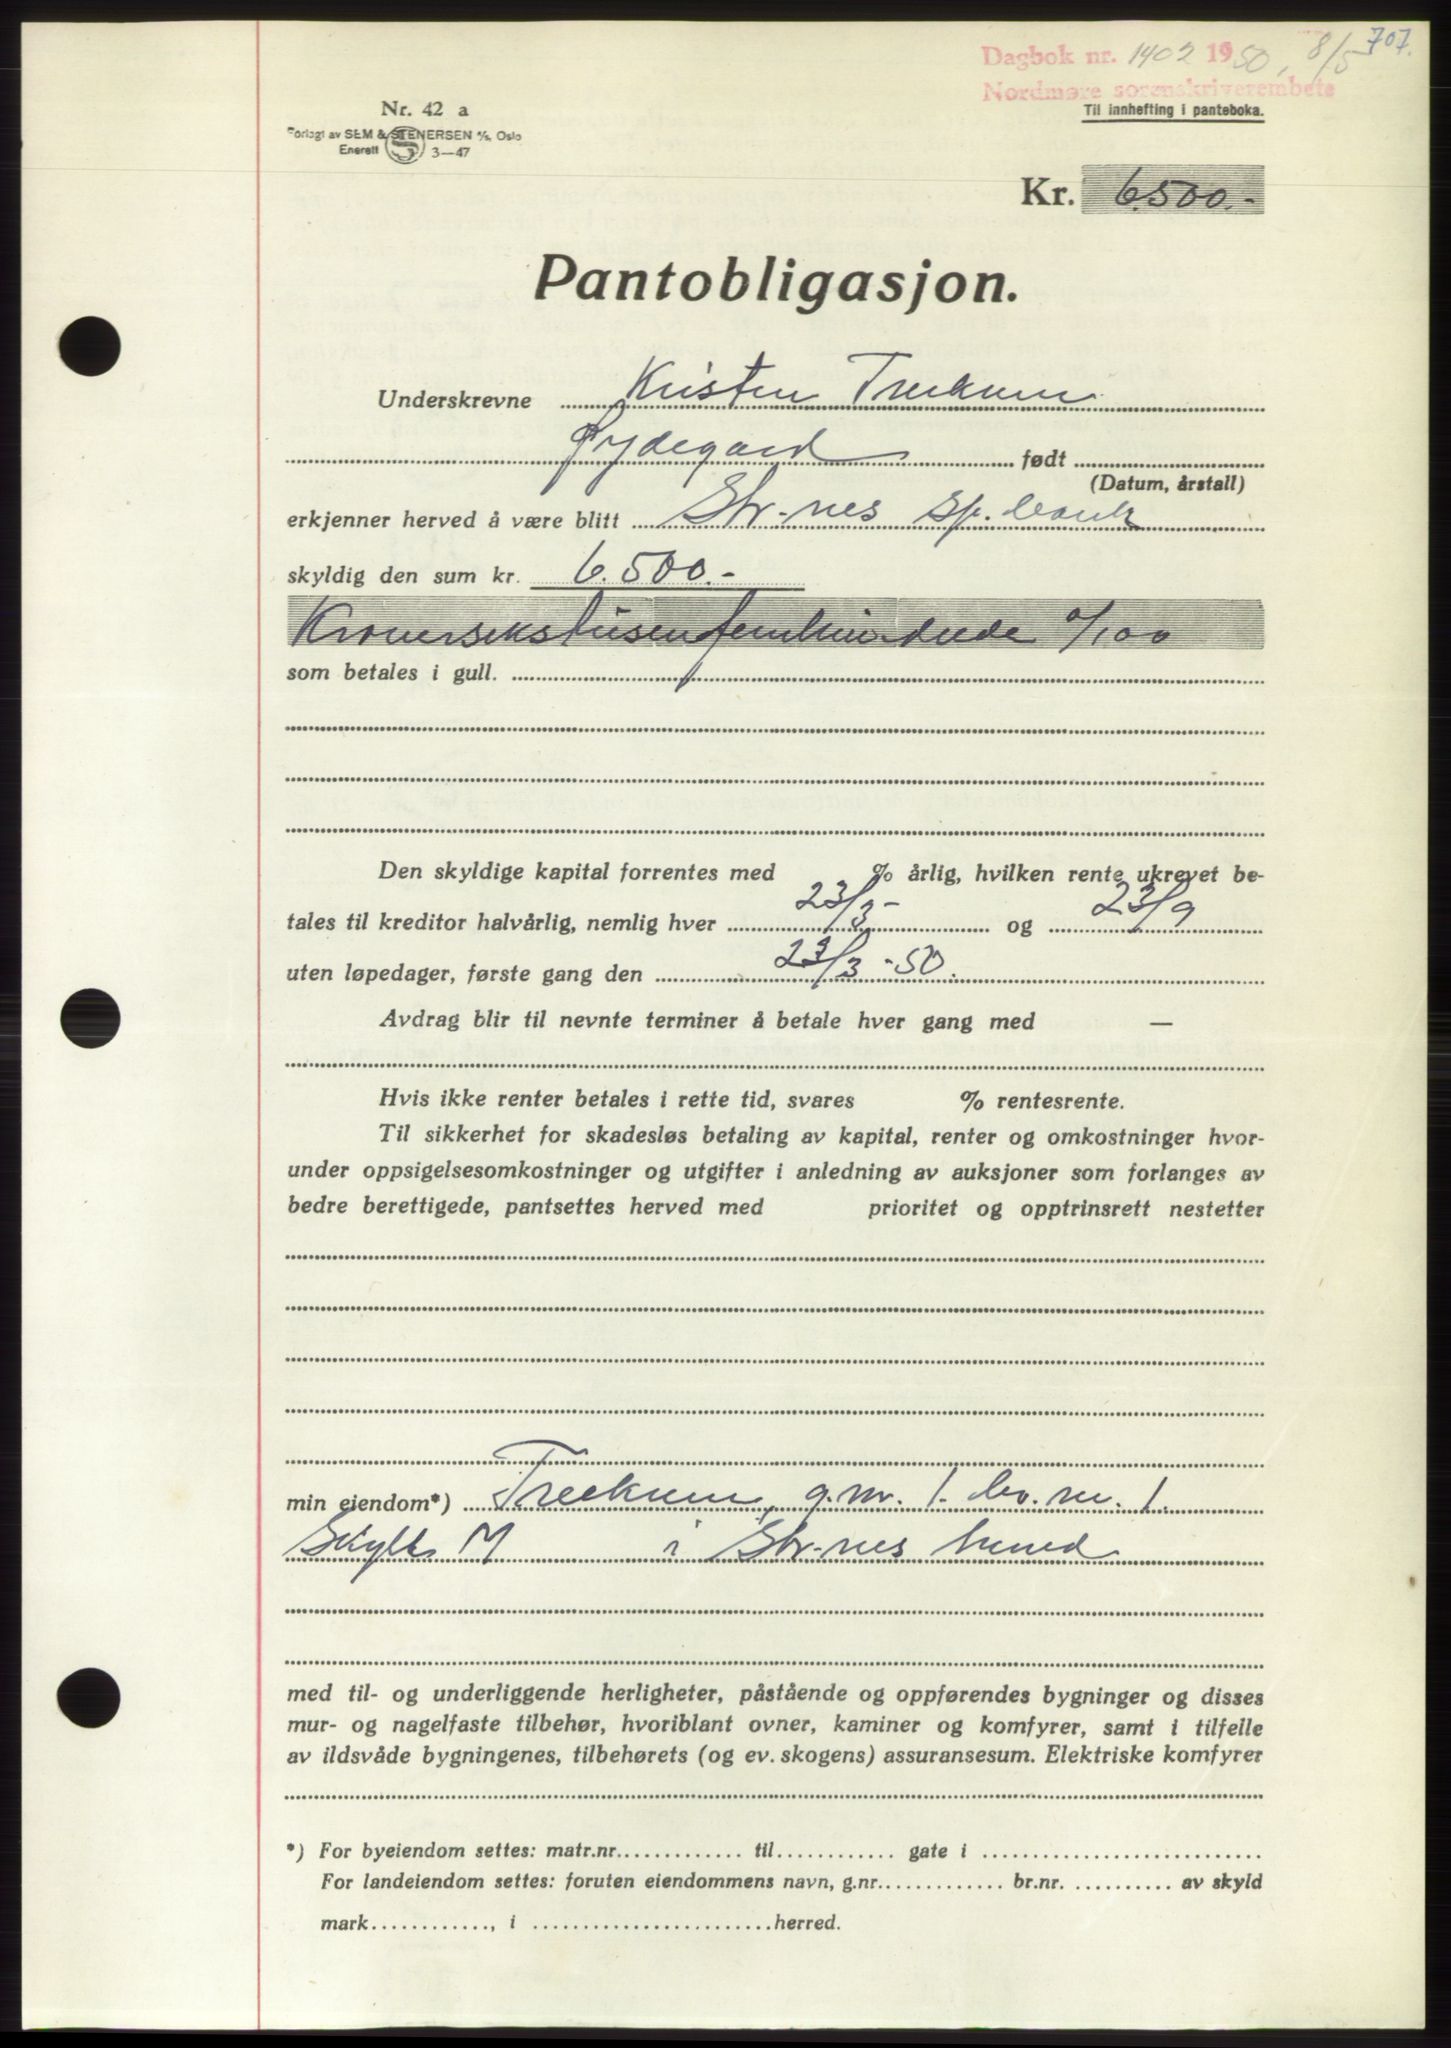 707.
Dagbok nr. 1402 1950, 8/5
Nordmøre sorenskriverembete
Til innhefting i panteboka.
Nr. 42 a
Forlagt av SEM & STENERSEN A/S, Oslo
Enerett S 3—47
Kr. 6.500.-
Pantobligasjon.
Underskrevne Kristen Treekrem
Øydegard født
(Datum, årstall)
erkjenner herved å være blitt Str.-nes Sp.bank
skyldig den sum kr. 6.500.-
Kronersekstusenfemhundrede 0/100
som betales i gull.
Den skyldige kapital forrentes med % årlig, hvilken rente ukrevet be-
tales til kreditor halvårlig, nemlig hver 23/3 - og 23/9
uten løpedager, første gang den 23/3 -50.
Avdrag blir til nevnte terminer å betale hver gang med —
Hvis ikke renter betales i rette tid, svares % rentesrente.
Til sikkerhet for skadesløs betaling av kapital, renter og omkostninger hvor-
under oppsigelsesomkostninger og utgifter i anledning av auksjoner som forlanges av
bedre berettigede, pantsettes herved med prioritet og opptrinsrett nestetter
min eiendom*) Treekrem, g.nr. 1. br.nr. 1.
Skyld M i Str.-nes herred
med til- og underliggende herligheter, påstående og oppførendes bygninger og disses
mur- og nagelfaste tilbehør, hvoriblant ovner, kaminer og komfyrer, samt i tilfelle
av ildsvåde bygningenes, tilbehørets (og ev. skogens) assuransesum. Elektriske komfyrer
*) For byeiendom settes: matr.nr. til gate i
For landeiendom settes: foruten eiendommens navn, g.nr. br.nr. av skyld
mark , i herred.